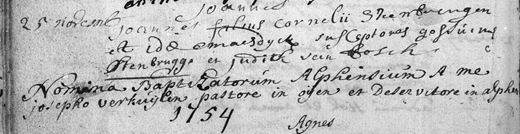 Joannes
25 novemb Joannes filius Cornelii Steenbruggen
et idæ Smaesdijck susceptores gosuinus
Stenbrugge et judith sein bosch
Nomina Baptizatorum Alphensium A me
josepho verkuijlen pastore in oijen et Deservitore in alphen
1754
Agnes